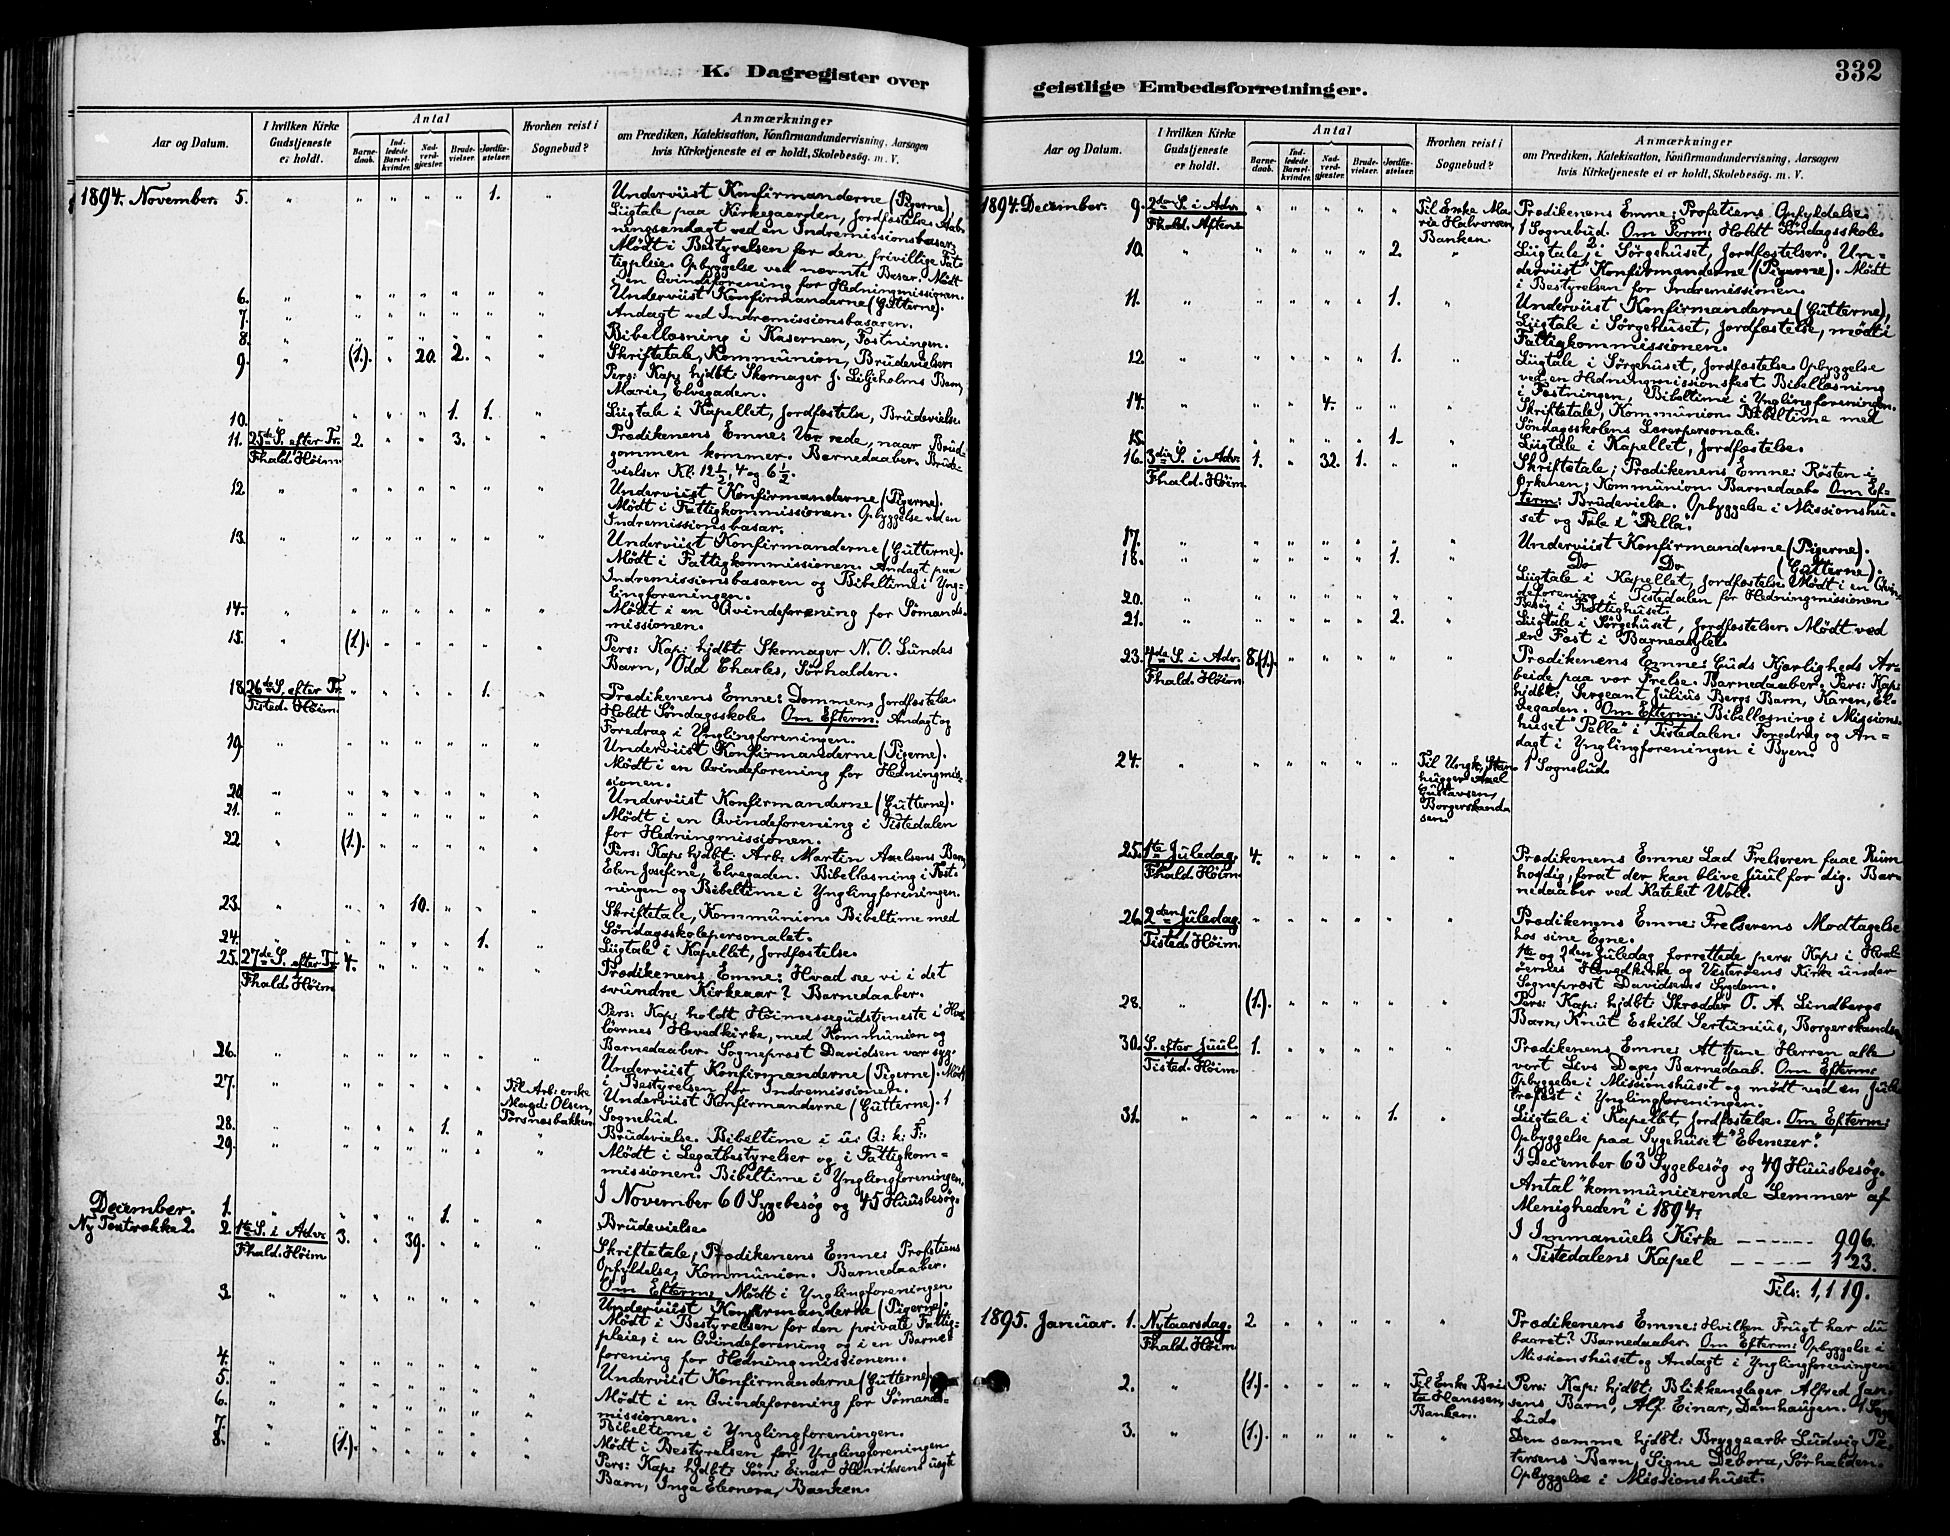 K. Dagregister over
Aar og Datum.
I hvilken Kirke Gudstjeneste ei holdt.
Antal
Barnedaab.
Indledede Barselkvinder.
Nadverdgjæster.
Brudevielser.
Jordfæstelser.
Hvorhen reist i Sognebud?
Anmærkninger
om Prædiken, Katekisation, Konfirmandundervisning, Aarsagen
hvis Kirketjeneste ei er holdt, Skolebesøg. m. V.
1894. November. 5. " " " " " 1. Underviist Konfirmanderne (Pigerne)
Liigtale paa Kirkegaarden, Jordfæstelse. Aabningsandagt ved en Indremissionsbasar.
Mødt i Bestyrelsen for den frivillige Fattigpleie. Opbyggelse ved nævnte Basar. Mødt
i en Qvindeforening for Hedningmissionen.
6. Underviist Konfirmanderne (Gutterne).
7. Andagt ved Indremissionsbasaren.
8. Bibellæsning i Kasernen, Fæstningen.
9. (1.) 20. 2. Skriftetale, Kommunion, Brudevielser.
Pers: Kap: hjdbt: Skomager J. Liljeholms Barn,
Marie, Elvegaden.
10. 1. 1. Liigtale i Kapellet, Jordfæstelse, Brudevielse.
11. 25de S. efter Tr. 2. 3. Prædikenens Emne: Vær rede, naar Brud-
Fhald. Høim. gommen kommer. Barnedaaber. Brude-
vielser Kl. 12½, 4 og 6½.
12. Underviist Konfirmanderne (Pigerne).
Mødt i Fattigkommissionen. Opbyggelse ved en
Indremissionsbasar.
13. Underviist Konfirmanderne (Gutterne).
Mødt i Fattigkommissionen. Andagt paa
Indremissionsbasaren og Bibeltime i Yng-
lingforeningen.
14. Mødt i en Qvindeforening for Sømands-
missionen.
15. (1.) Pers: Kap: hjdbt: Skomager N. O. Lundes
Barn, Odd Charles, Sørhalden.
18. 26de S. efter Tr. 1. Prædikenens Emne: Dommen, Jordfæstelse.
Tisted. Høim. Holdt Søndagsskole. Om Efterm: Andagt og
Foredrag i Ynglingforeningen.
19. Underviist Konfirmanderne (Pigerne).
Mødt i en Qvindeforening for Hedningmis-
sionen.
20. Underviist Konfirmanderne (Gutterne).
21. Mødt i en Qvindeforening i Tistedalen
for Hedningmissionen.
22. (1.) Pers: Kap: hjdbt: Arb: Martin Axelsens Barn,
Elen Josefine, Elvegaden. Bibellæsning i Fæst-
ningen og Bibeltime i Ynglingforeningen.
23. 10. Skriftetale, Kommunion. Bibeltime med
Søndagsskolepersonalet.
24. 1. Liigtale i Kapellet, Jordfæstelse.
25. 27de S. efter Tr. 4. Prædikenens Emne: Hvad see vi i det
Fhald. Høim. svundne Kirkeaar? Barnedaaber.
Pers: Kap: holdt Høimessegudstjeneste i Hval-
øernes Hovedkirke, med Kommunion og
Barnedaaber. Sogneprost Davidsen var syg.
26. Underviist Konfirmanderne (Pigerne). Mødt
i Bestyrelsen for Indremissionen.
27. Til Arb: enke Magd: Olsen, Torsnæsbakken. Underviist Konfirmanderne (Gutterne). 1
Sognebud.
28. 1. Brudevielse. Bibeltime i u: Q: k: F:.
29. Mødt i Legatbestyrelser og i Fattigkom-
missionen. Bibeltime i Ynglingforeningen.
I November 60 Sygebesøg og 45 Huusbesøg.
December. 1. 1. Brudevielse.
Ny Textrække 2. 2. 1ste S. i Adv. 3. 39. Skriftetale; Prædikenens Emne: Profetiens
Fhald. Høim. Opfyldelse, Kommunion. Barnedaaber.
Om Efterm: Mødt i Ynglingforeningen.
3. Underviist Konfirmanderne (Pigerne).
Mødt i Bestyrelsen for den private Fattig-
pleie, i en Qvindeforening og i en Barne-
forening for Hedningmissionen.
4. Underviist Konfirmanderne (Gutterne).
5. Mødt i en Qvindeforening for Sømands-
missionen.
6. Bibeltime i Ynglingforeningen.
7. Mødt i Bestyrelsen for Ynglingforeningen.
8. (1.) Pers: Kap: hjdbt: Søm: Einar Henriksens uægte
Barn, Inga Eleonora, Banken.
geistlige Embedsforretninger.
332
Aar og Datum.
I hvilken Kirke Gudstjeneste er holdt.
Antal
Barnedaab.
Indledede Barselkvinder.
Nadverdgjæster.
Brudevielser.
Jordfæstelser.
Hvorhen reist i Sognebud?
Anmærkninger
om Prædiken, Katekisation, Konfirmandundervisning, Aarsagen
hvis Kirketjeneste ei er holdt, Skolebesøg. m. V.
1894. December. 9. 2den S. i Adv. Til Enke Maria Halvorsen, Banken. Prædikenens Emne: Profetiens Opfyldelse.
Fhald. Aftens. 1 Sognebud. Om Form: Holdt Søndagsskole.
10. 2. Liigtale i Sørgehuset, Jordfæstelser. Un-
derviist Konfirmanderne (Pigerne). Mødt
i Bestyrelsen for Indremissionen.
11. 1. Underviist Konfirmanderne (Gutterne),
Liigtale i Sørgehuset, Jordfæstelse, mødt i
Fattigkommissionen.
12. 1. Liigtale i Sørgehuset, Jordfæstelse. Opbyggelse
ved en Hedningmissionsfest. Bibellæsning
i Fæstningen. Bibeltime i Ynglingforeningen.
14. 4. Skriftetale, Kommunion. Bibeltime med
Søndagsskolens Lærerpersonale.
15. 1. Liigtale i Kapellet, Jordfæstelse.
16. 3die S. i Adv. 1. 32. 1. Skriftetale; Prædikenens Emne: Røsten i
Fhald. Høim. Ørkenen; Kommunion. Barnedaab. Om Ef-
term: Brudevielse. Opbyggelse i Missionshu-
set og Tale i "Pella".
17. Underviist Konfirmanderne (Pigerne).
18. 1. Do Do (Gutterne).
Liigtale i Kapellet, Jordfæstelse. Mødt i en Qvin-
deforening i Tistedalen for Hedningmissionen.
20. Besøg i Fattighuset.
21. 2. Liigtale i Sørgehuset, Jordfæstelser. Mødt ved
en Fest i Barneasylet.
23. 4de S. i Adv. 8.(1.) Prædikenens Emne: Guds Kjærligheds Ar-
Fhald. Høim. beide paa vor Frelse. Barnedaaber. Pers: Kap:
hjdbt: Sergeant Julius Bergs Barn, Karen, El-
vegaden. Om Efterm: Bibellæsning i Missions-
huset "Pella" i Tistedalen. Foredrag og An-
dagt i Ynglingforeningen i Byen.
24. Til Ungk. Stenhugger Axel Gustavsen, Borgerskandsen. 1 Sognebud.
25. 1ste Juledag. 4. Prædikenens Emne: Lad Frelseren faae Rum
Fhald. Høim. hos dig, forat der kan blive Juul for dig. Bar-
nedaaber ved Kateket Woll.
26. 2den Juledag. Prædikenens Emne: Frelserens Modtagelse
Tisted. Høim. hos sine Egne.
1ste og 2den Juledag forrettede pers: Kap: i Hval-
øernes Hovedkirke og Vesterøens Kirke under
Sogneprost Davidsens Sygdom.
28. (1.) Pers: Kap: hjdbt: Skrædder O. A. Lindbergs
Barn, Knut Eskild Sertunius, Borgerskandsen.
30. S. efter Juul. 1. Prædikenens Emne: At tjene Herren alle
Tisted. Høim. vort Livs Dage. Barnedaab. Om Efterm:
Opbyggelse i Missionshuset og mødt ved en Jule-
træfest i Ynglingforeningen.
31. 1. Liigtale i Kapellet, Jordfæstelse. Om Efterm:
Opbyggelse paa Sygehuset "Ebenezer".
I December 63 Sygebesøg og 49 Huusbesøg.
Antal "kommunicerende Lemmer af
Menigheden" i 1894:
I Immanuels Kirke ------ 996.
" Tistedalens Kapel ------ 123.
Tils: 1,119.
1895. Januar. 1. Nytaarsdag. 2. Prædikenens Emne: Hvilken Frugt har du
Fhald. Høim. baaret? Barnedaaber. Om Efterm: Opbyggelse i
Missionshuset og Andagt i Ynglingforeningen.
2. (1.) Til Enke Brita Hanssen, Banken. Pers: Kap: hjdbt: Blikkenslager Alfred Jan-
sens Barn, Alf Einar, Damhaugen. 1 Sogne-
bud.
3. (1.) Den samme hjdbt: Bryggearb: Ludvig Pe-
tersens Barn, Signe Debora, Sørhalden.
Opbyggelse i Missionshuset.